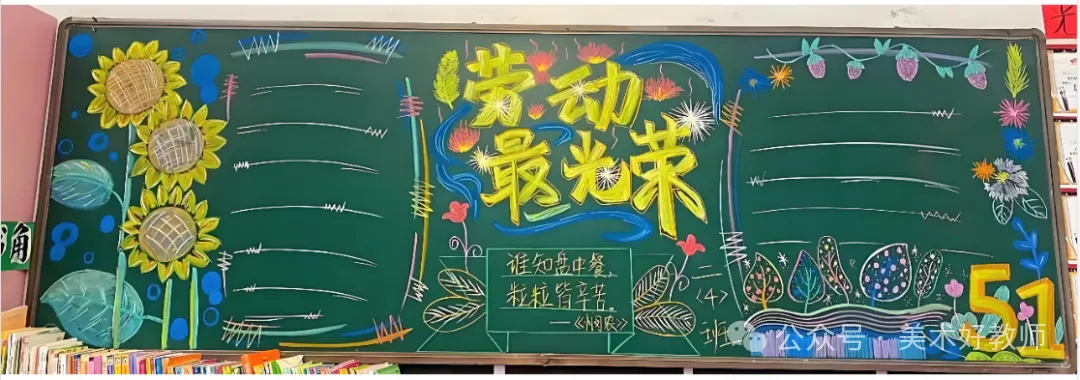 劳动
最光荣
谁知盘中餐，
粒粒皆辛苦。
——《悯农》
二
〈4〉
班
51
角
光
公众号 美术好教师